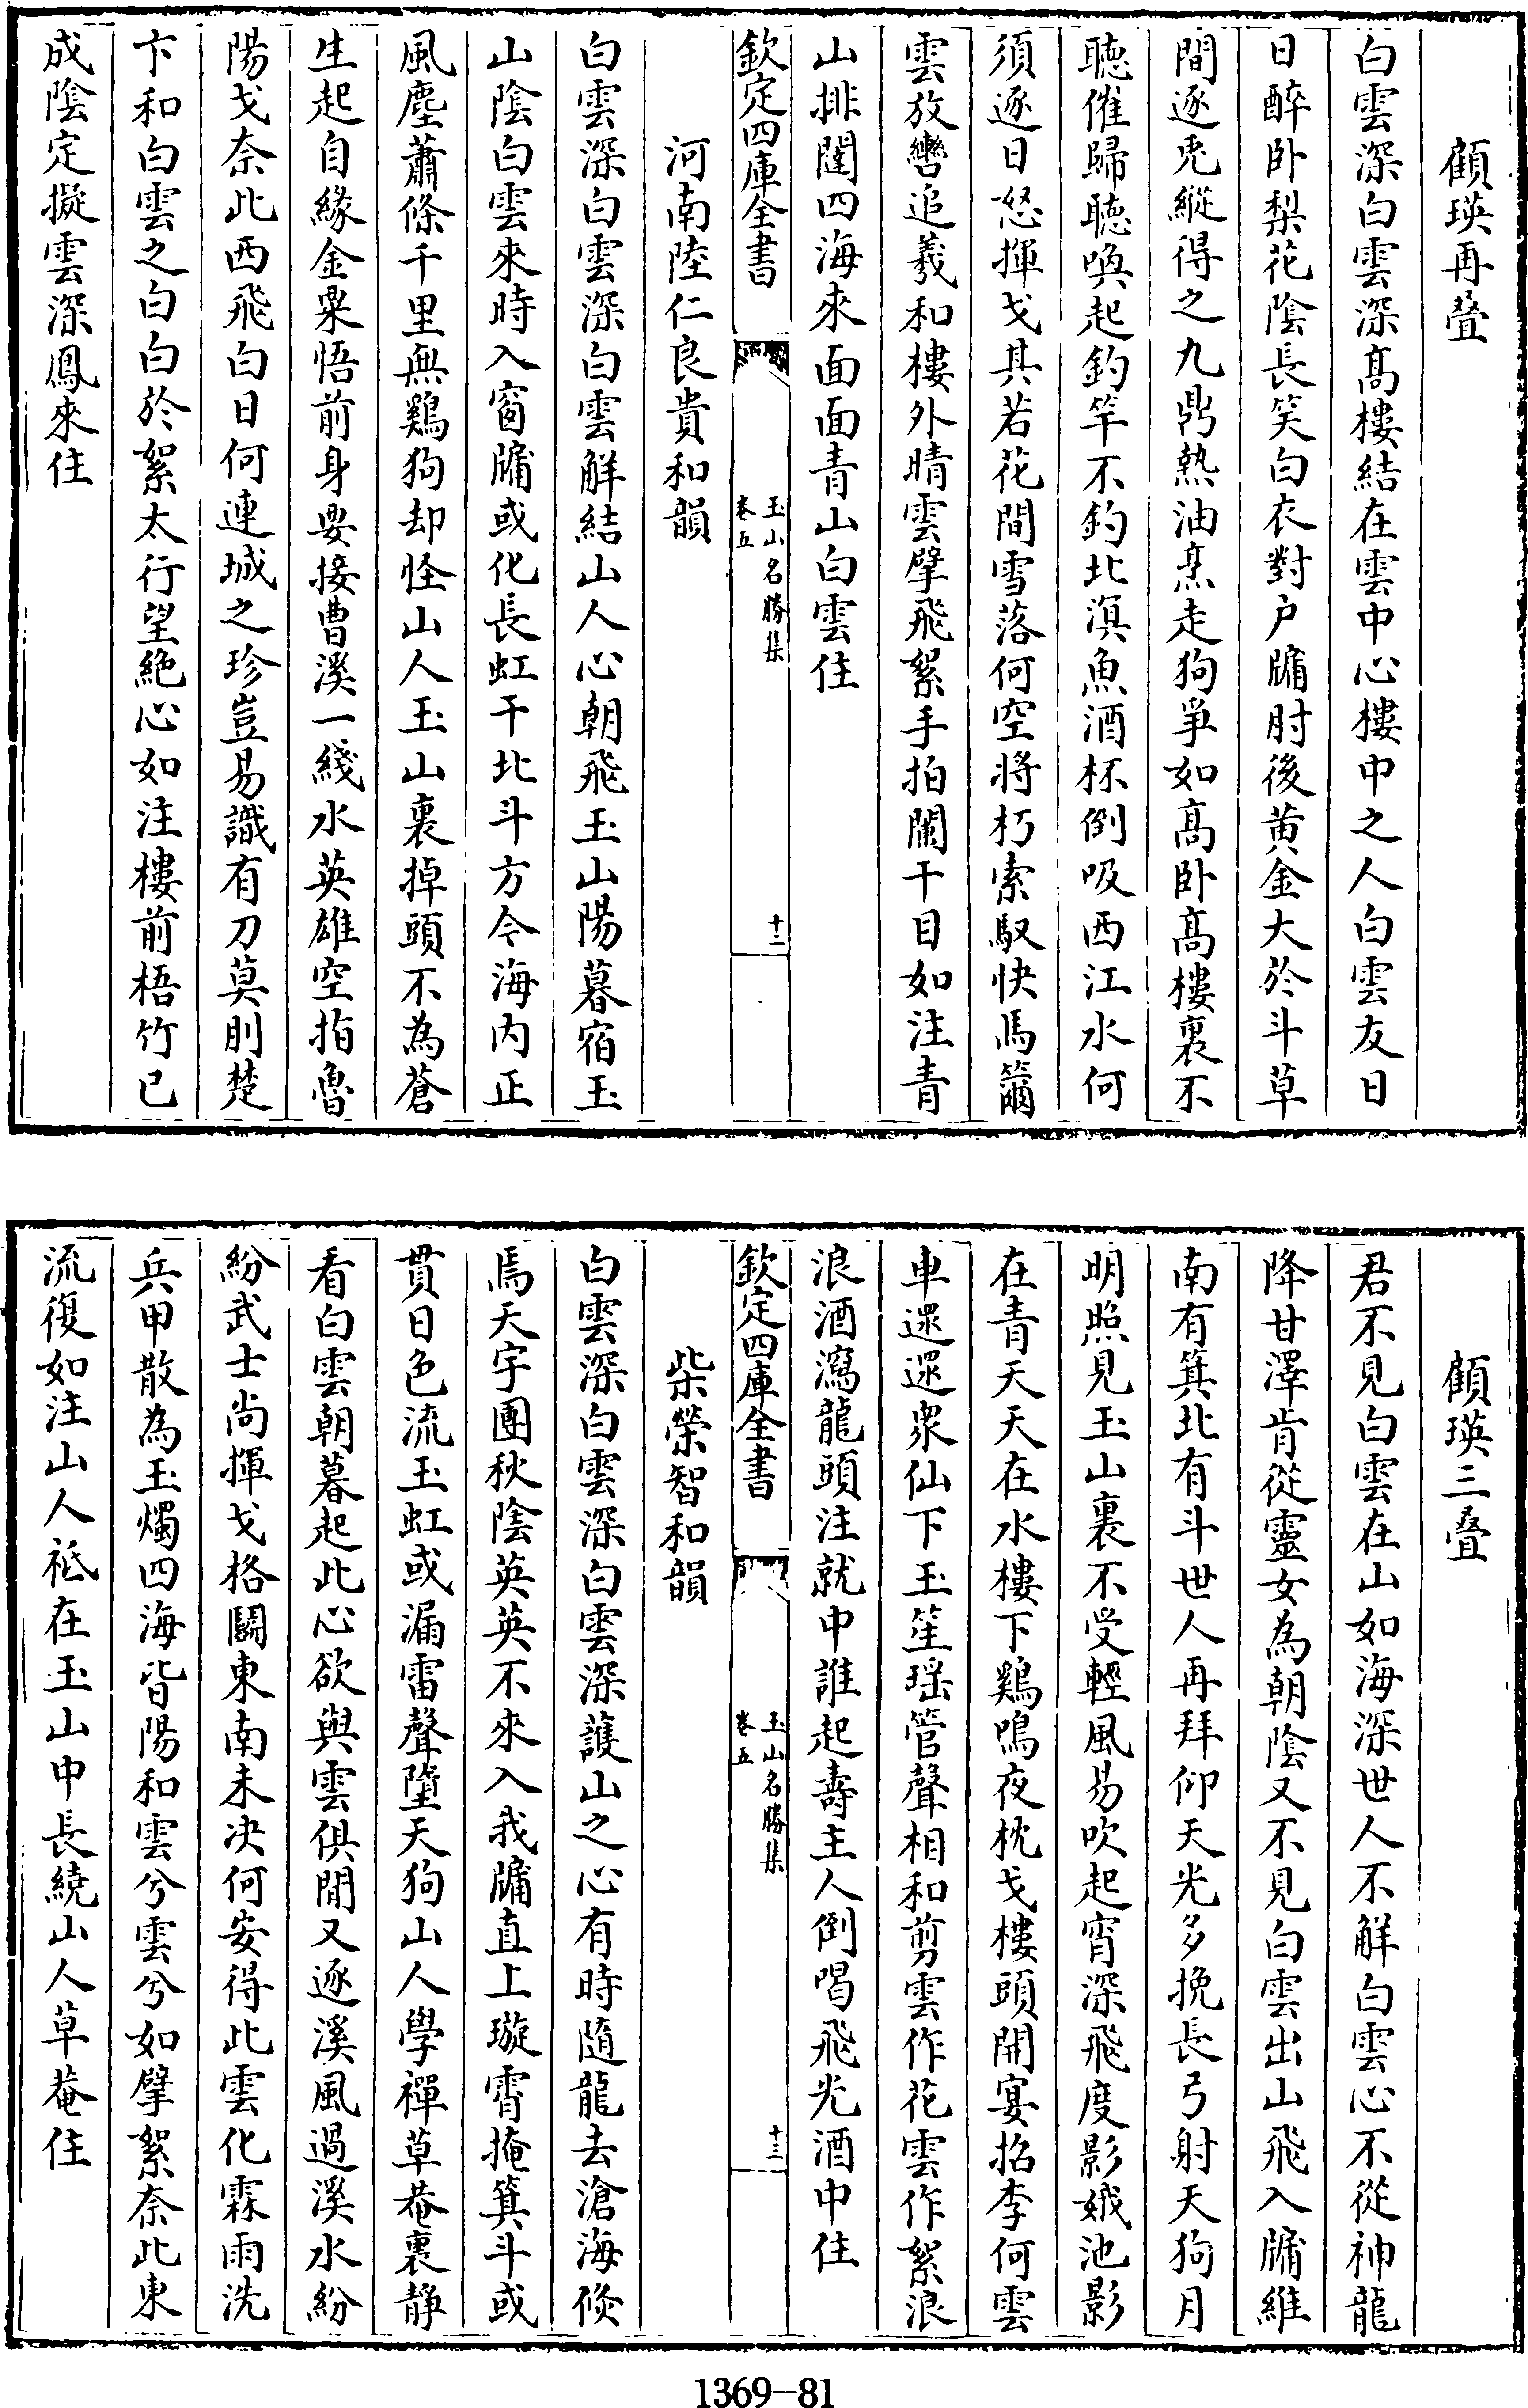 顧瑛再疊
白雲深白雲深髙樓結在雲中心樓中之人白雲友日
日醉卧梨花陰長笑白衣對户牖肘後黄金大於斗草
間逐兎縱得之九鼎熱油烹走狗爭如髙卧髙樓裏不
聴催歸聴喚起釣竿不釣北溟魚酒杯倒吸西江水何
須逐日怒揮戈其若花間雪落何空將朽索馭快馬籋
雲放轡追羲和樓外晴雲擘飛絮手拍闌干目如注青
山排闥四海來面面青山白雲住
欽定四庫全書
玉山名勝集
卷五
十二
河南陸仁良貴和韻
白雲深白雲深白雲解結山人心朝飛玉山陽暮宿玉
山陰白雲來時入窗牖或化長虹干北斗方今海内正
風塵蕭條千里無鷄狗却怪山人玉山裏掉頭不為蒼
生起自緣金粟悟前身要接曹溪一綫水英雄空指魯
陽戈奈此西飛白日何連城之珍豈易識有刀莫刖楚
卞和白雲之白白於絮太行望絶心如注樓前梧竹已
成陰定擬雲深鳳來住
顧瑛三疊
君不見白雲在山如海深世人不解白雲心不從神龍
降甘澤肯從靈女為朝陰又不見白雲出山飛入牖維
南有箕北有斗世人再拜仰天光多挽長弓射天狗月
明照見玉山裏不受輕風易吹起宵深飛度影娥池影
在青天天在水樓下鷄鳴夜枕戈樓頭開宴招李何雲
車還還衆仙下玉笙瑶管聲相和剪雲作花雲作絮浪
浪酒瀉龍頭注就中誰起壽主人倒喝飛光酒中住
欽定四庫全書
玉山名勝集
卷五
十三
柴榮智和韻
白雲深白雲深白雲深護山之心有時隨龍去滄海倐
焉天宇團秋陰英英不來入我牖直上璇霄掩箕斗或
貫日色流玉虹或漏雷聲墮天狗山人學禪草菴裏静
看白雲朝暮起此心欲與雲俱閒又逐溪風過溪水紛
紛武士尚揮戈格鬭東南未决何安得此雲化霖雨洗
兵甲散為玉燭四海皆陽和雲兮雲兮如擘絮奈此東
流復如注山人祇在玉山中長繞山人草菴住
1369-81